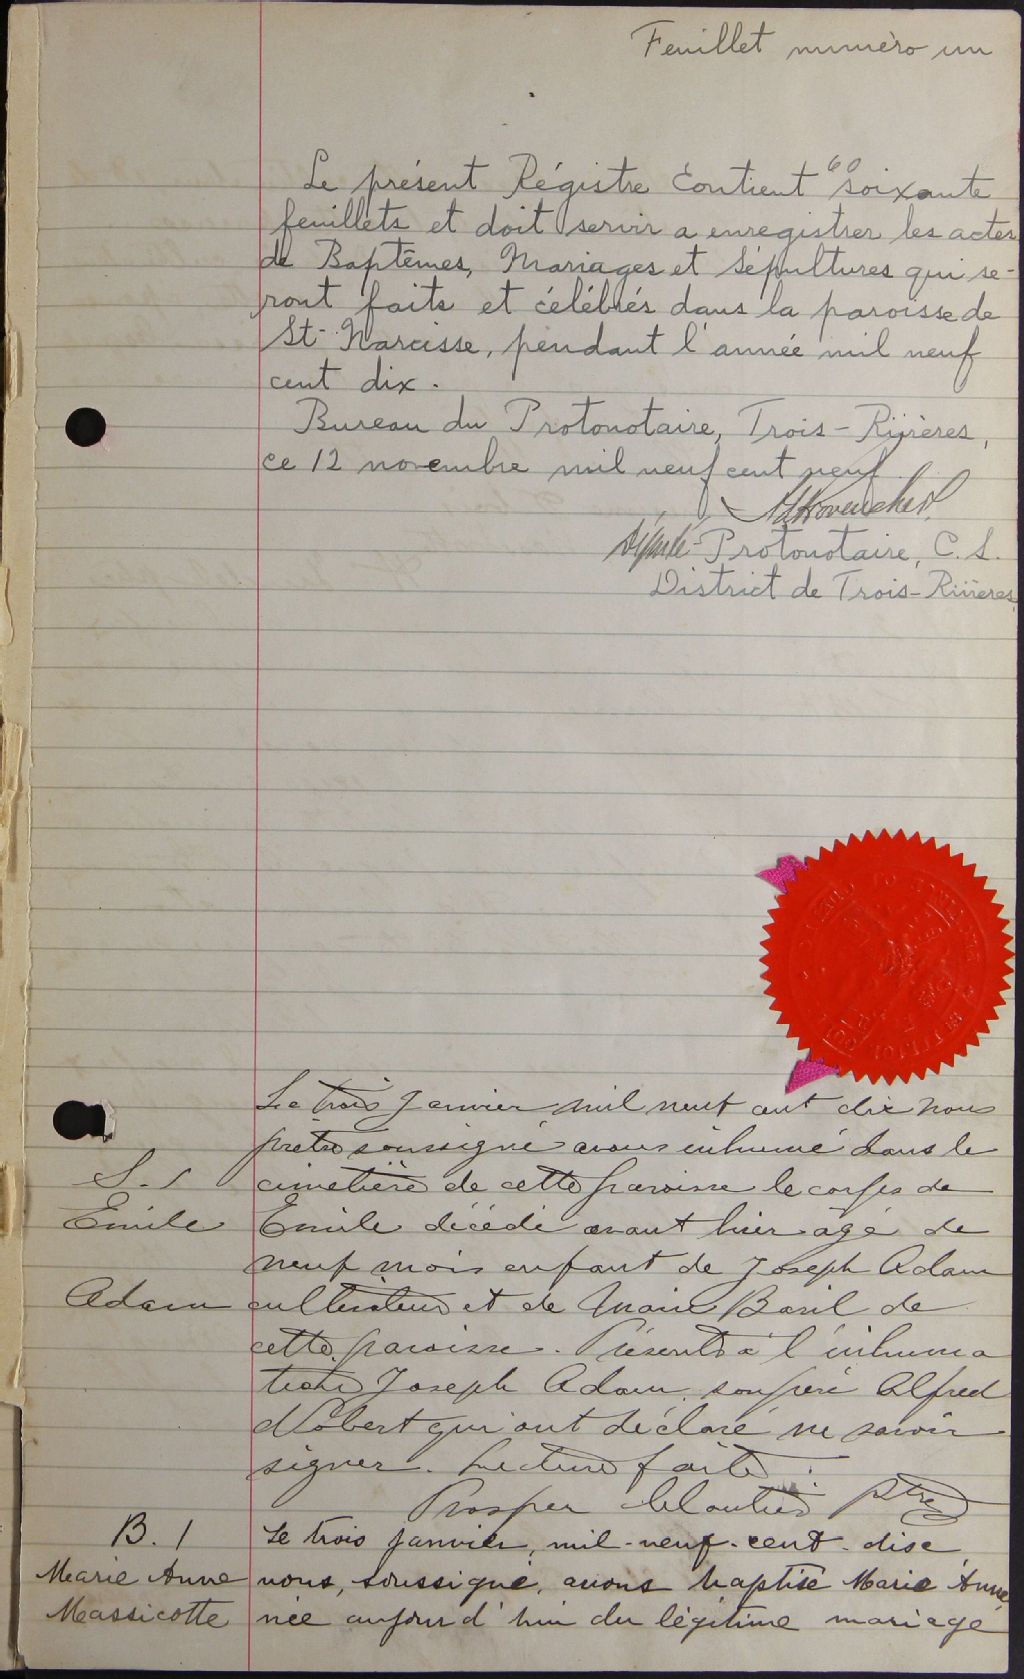 Feuillet numéro un
Le présent Régistre Contient 60 soixante
feuillets et doit servir a enregistrer les actes
de Baptêmes, Mariages et Sépultures qui se-
ront faits et célébrés dans la paroisse de
St-Narcisse, pendant l'année mil neuf
cent dix.
Bureau du Protonotaire, Trois-Rivières,
ce 12 novembre mil neuf cent neuf
Député-Protonotaire, C. S.
District de Trois-Rivières
Le trois Janvier mil neuf cent dix nous
prêtre soussigné avons inhumé dans le
S. 1 cimetière de cette paroisse le corps de
Emile Emile décédé avant hier agé de
neuf mois enfant de Joseph Adam
Adam cultivateur et de Marie Baril de
cette paroisse. Présents à l'inhuma
tion Joseph Adam son père Alfred
qui ont déclaré ne savoir
signer. Lecture faite.
Prosper Cloutier ptre
B. 1 Le trois janvier, mil-neuf-cent-dix
Marie Anne nous, soussigné, avons baptisé Marie Anne,
Massicotte née aujourd'hui du légitime mariage